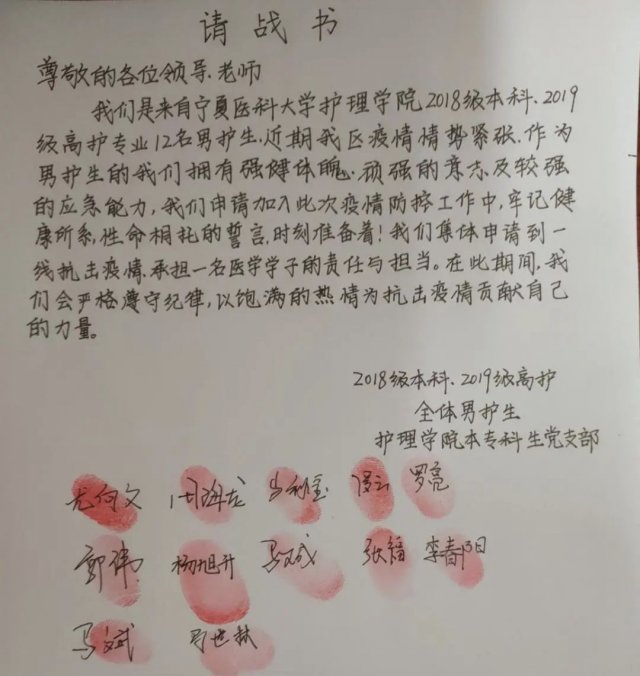 请战书
尊敬的各位领导、老师
我们是来自宁夏医科大学护理学院2018级本科、2019
级高护专业12名男护生.近期我区疫情情势紧张.作为
男护生的我们拥有强健体魄、顽强的意志及较强
的应急能力,我们申请加入此次疫情防控工作中,牢记健
康所系,性命相托的誓言,时刻准备着!我们集体申请到一
线抗击疫情.承担一名医学学子的责任与担当。在此期间,我
们会严格遵守纪律,以饱满的热情为抗击疫情贡献自己
的力量。
2018级本科、2019级高护
全体男护生
护理学院本专科生党支部
尤向文 罗亮
郭伟 杨旭升 马斌成 张福 李春阳
马斌